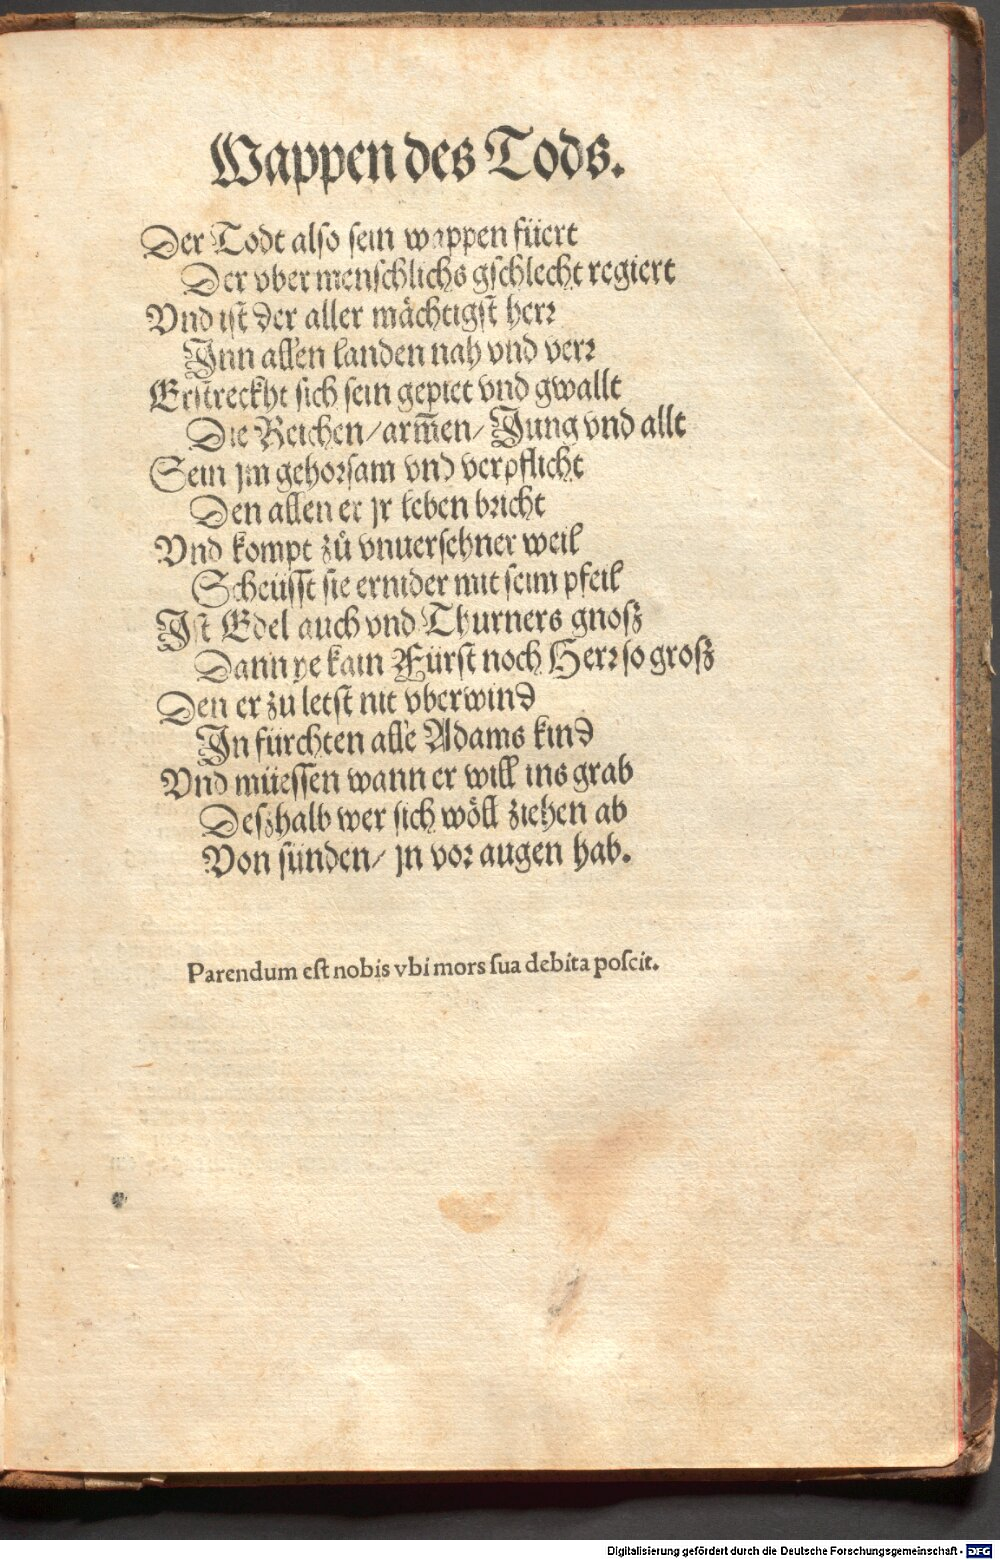 Wappen des Tods.
Der Todt also sein wappen füert
Der vber menschlichs gschlecht regiert
Vnd ist der aller mächtigst herr
Jnn allen landen nah vnd verr
Erstreckht sich sein gepiet vnd gwallt
Die Reichen/ arm̄en/ Jung vnd allt
Sein jm gehorsam vnd verpflicht
Den allen er jr leben bricht
Vnd kompt zů vnuersehner weil
Scheüsst sie ernider mit seim pfeil
Jst Edel auch vnd Thurners gnosz
Dann ye kain Fürst noch Herr so grosz
Den er zu letst nit vberwind
Jn fürchten alle Adams kind
Vnd müessen wann er will ins grab
Deszhalb wer sich wöll ziehen ab
Von sünden/ jn vor augen hab.
Parendum est nobis vbi mors sua debita poscit.
Digitalisierung gefördert durch die Deutsche Forschungsgemeinschaft - DFG